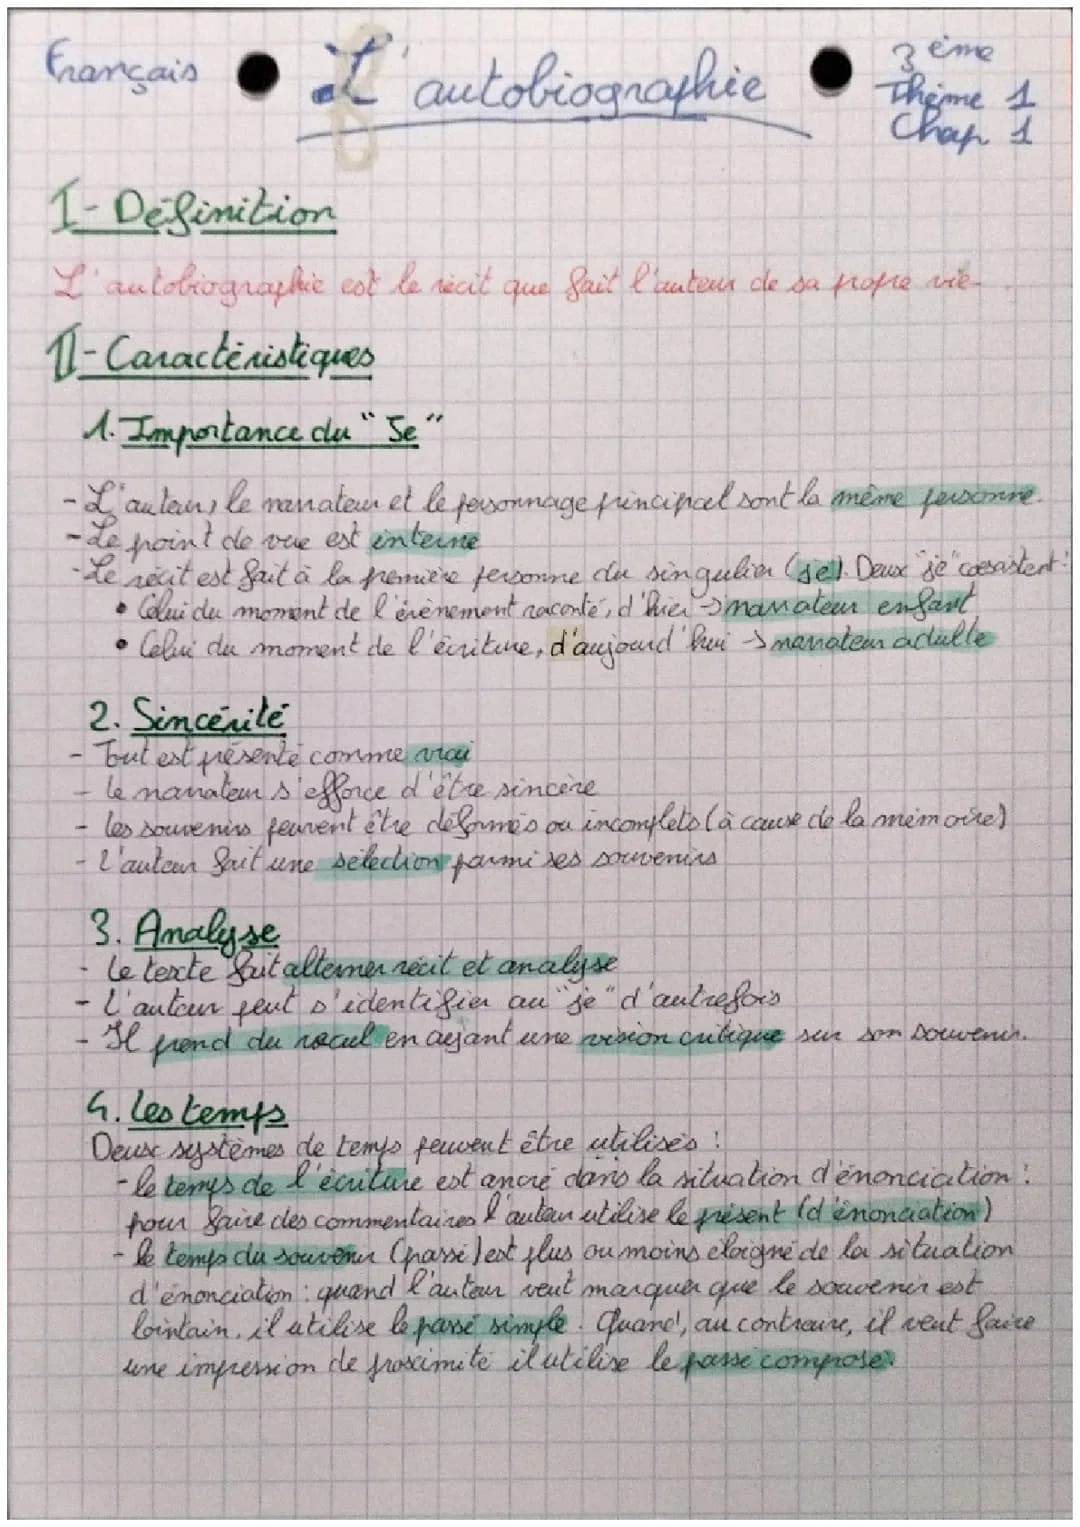 Français
L'autobiographie
3ème
Thème 1
Chap 1
I- Définition
L'autobiographie est le récit que fait l'auteur de sa propre vie.
II- Caractéristiques
1. Importance du "Je"
- L'auteur, le narrateur et le personnage principal sont la même personne.
- Le point de vue est interne
- Le récit est fait à la première personne du singulier (je). Deux "je" coexistent :
• Celui du moment de l'évènement raconté, d'hier → narrateur enfant
• Celui du moment de l'écriture, d'aujourd'hui → narrateur adulte
2. Sincérité
- Tout est présenté comme vrai
- le narrateur s'efforce d'être sincère
- les souvenirs peuvent être déformés ou incomplets (à cause de la mémoire)
- l'auteur fait une sélection parmi ses souvenirs
3. Analyse
- Le texte fait alterner récit et analyse
- L'auteur peut s'identifier au "je" d'autrefois
- Il prend du recul en ayant une vision critique sur son souvenir.
4. Les temps
Deux systèmes de temps peuvent être utilisés :
- le temps de l'écriture est ancré dans la situation d'énonciation :
pour faire des commentaires l'auteur utilise le présent (d'énonciation)
- le temps du souvenir (passé) est plus ou moins éloigné de la situation
d'énonciation : quand l'auteur veut marquer que le souvenir est
lointain, il utilise le passé simple. Quand, au contraire, il veut faire
une impression de proximité il utilise le passé composé.